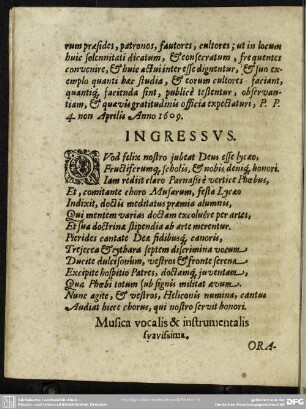 rum præsides, patronos, fautores, cultores; ut in locum
huic solennitati dicatum, & consecratum, frequentes
convenire, & huic actui interesse dignentur, & suo ex-
emplo quanti hæc studia, & eorum cultores faciant,
quantiq; facienda sint, publicè testentur, observan-
tiam, & quævis gratitudinis officia expectaturi, P. P.
4. non Aprilis Anno 1609.
INGRESSVS.
QVod felix nostro jubeat Deus esse lycæo,
Fructiferumq, scholis, & nobis deniq, honori.
Iam rediit claro Parnasi è vertice Phœbus,
Et, comitante choro Musarum, festa Lycæo
Indixit, doctis meditatus præmia alumnis,
Qui mentem varias doctam excoluêre per artes,
Et sua doctrinæ stipendia ab arte merentur.
Pierides cantate Dea fidibusq; canoris,
Tresseca & cythara septem discrimina vocum
Ducite dulcisonûm, vestros & fronte serena
Excipite hospitio Patres, doctamq; juventam,
Quæ Phœbi totum sub signis militat ævum.
Nunc agite, & vestros, Heliconis numina, cantus
Audiat hicce chorus, qui nostro servit honori.
Musica vocalis & instrumentalis
suavissima.
ORA-